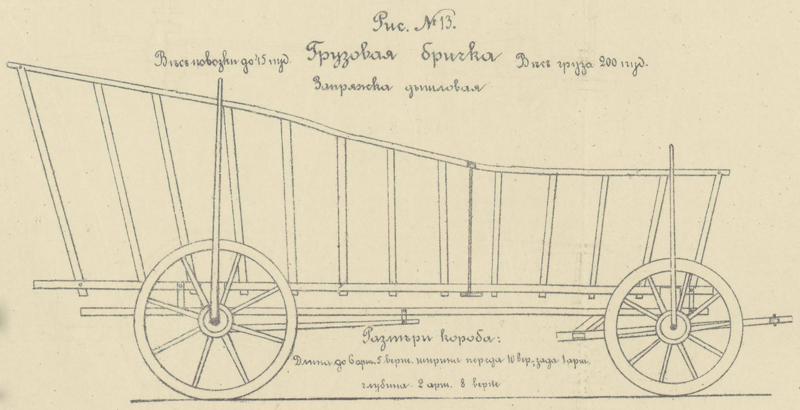 Рис. №13.
Грузовая бричка
Вѣсъ повозки до 45 пуд.
Вѣсъ груза 200 пуд.
Запряжка дышловая
Размѣры короба:
Длина до 6 арш. 5 верш. ширина переда 10 вер., зада 1 арш.
глубина 2 арш. 8 верш.